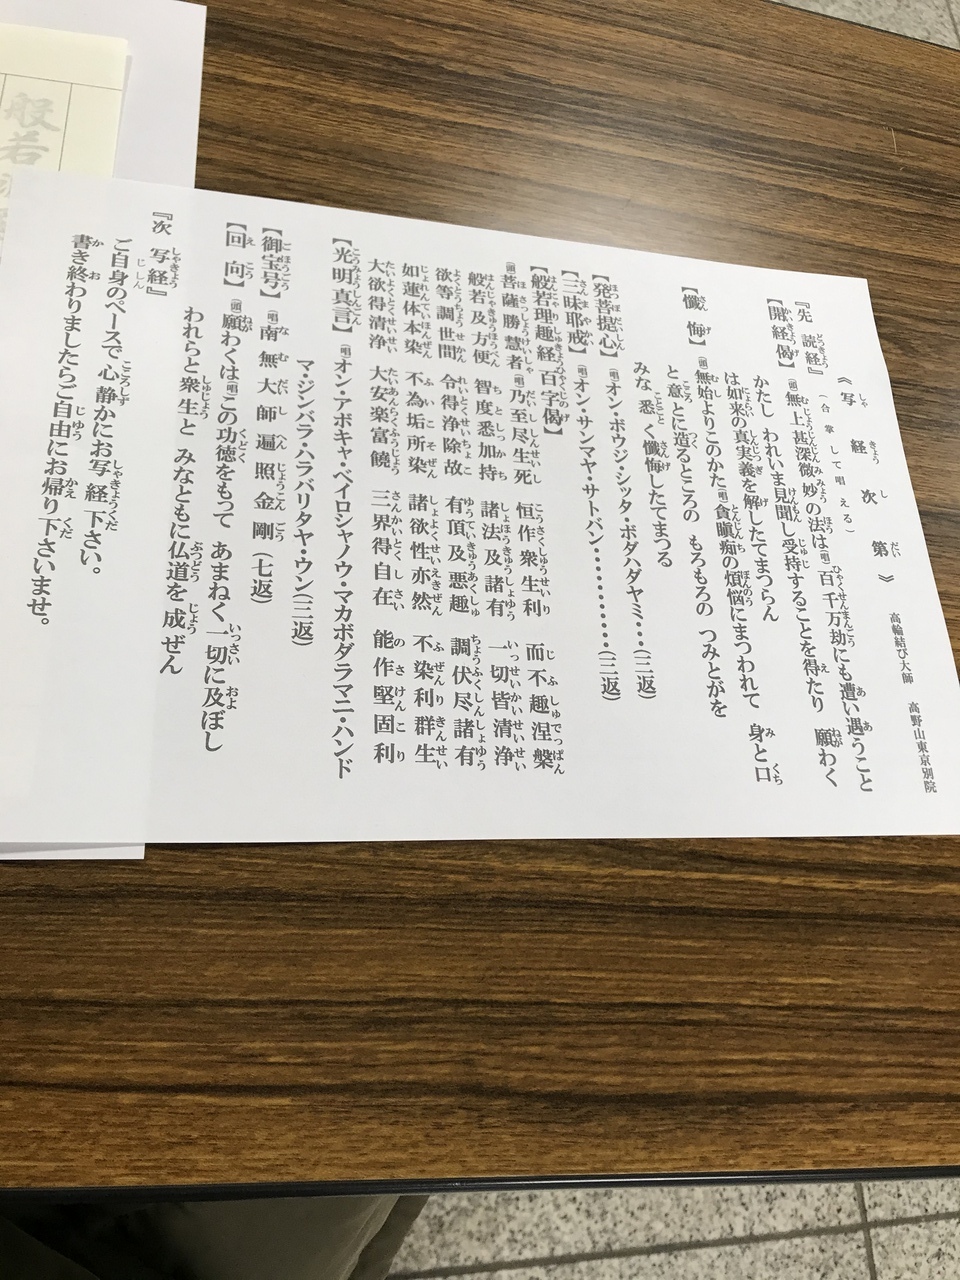 《写経次第》
高輪結び大師 高野山東京別院
(合掌して唱える)
『先 読経』
【開経偈】 (頭)無上甚深微妙の法は(唱)百千万劫にも遭い遇うこと
かたし われいま見聞し受持することを得たり 願わく
は如来の真実義を解したてまつらん
【懺悔】 (頭)無始よりこのかた(唱)貪瞋痴の煩悩にまつわれて 身と口
と意とに造るところの もろもろの つみとがを
みな悉く懺悔したてまつる
【発菩提心】 (唱)オン・ボウジ・シッタ・ボダハダヤミ・・・(三返)
【三昧耶戒】 (唱)オン・サンマヤ・サトバン・・・・・・・・・(三返)
【般若理趣経百字偈】
(頭)菩薩勝慧者(唱)乃至尽生死 恒作衆生利 而不趣涅槃
般若及方便 智度悉加持 諸法及諸有 一切皆清浄
欲等調世間 令得浄除故 有頂及悪趣 調伏尽諸有
如蓮体本染 不為垢所染 諸欲性亦然 不染利群生
大欲得清浄 大安楽富饒 三界得自在 能作堅固利
【光明真言】 (唱)オン・アボキャ・ベイロシャノウ・マカボダラマニ・ハンド
マ・ジンバラ・ハラバリタヤ・ウン(三返)
【御宝号】 (唱)南無大師遍照金剛(七返)
【回向】 (頭)願わくは(唱)この功徳をもって あまねく一切に及ぼし
われらと衆生と みなともに仏道を成ぜん
『次 写経』
ご自身のペースで心静かにお写経下さい。
書き終わりましたらご自由にお帰り下さいませ。
般若